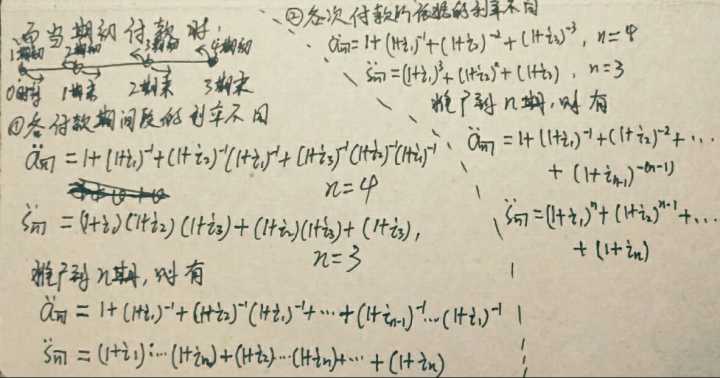 而当期初付款时,
1期初 2期初 3期初 4期初
0时刻 1期末 2期末 3期末
①各付款期间段的利率不同
ä_n˥ = 1+(1+i₁)⁻¹+(1+i₂)⁻¹(1+i₁)⁻¹+(1+i₃)⁻¹(1+i₂)⁻¹(1+i₁)⁻¹
n=4
s̈_n˥ = (1+i₁)(1+i₂)(1+i₃)+(1+i₂)(1+i₃)+(1+i₃),
n=3
推广到n期,则有
ä_n˥ = 1+(1+i₁)⁻¹+(1+i₂)⁻¹(1+i₁)⁻¹+⋯+(1+i_{n-1})⁻¹⋯(1+i₁)⁻¹
s̈_n˥ = (1+i₁)⋯(1+i_n)+(1+i₂)⋯(1+i_n)+⋯+(1+i_n)
②各次付款所依据的利率不同
ä_n˥ = 1+(1+i₁)⁻¹+(1+i₂)⁻²+(1+i₃)⁻³, n=4
s̈_n˥ = (1+i₁)³+(1+i₂)²+(1+i₃), n=3
推广到n期,则有
ä_n˥ = 1+(1+i₁)⁻¹+(1+i₂)⁻²+⋯
+(1+i_{n-1})^{-(n-1)}
s̈_n˥ = (1+i₁)ⁿ+(1+i₂)ⁿ⁻¹+⋯
+(1+i_n)